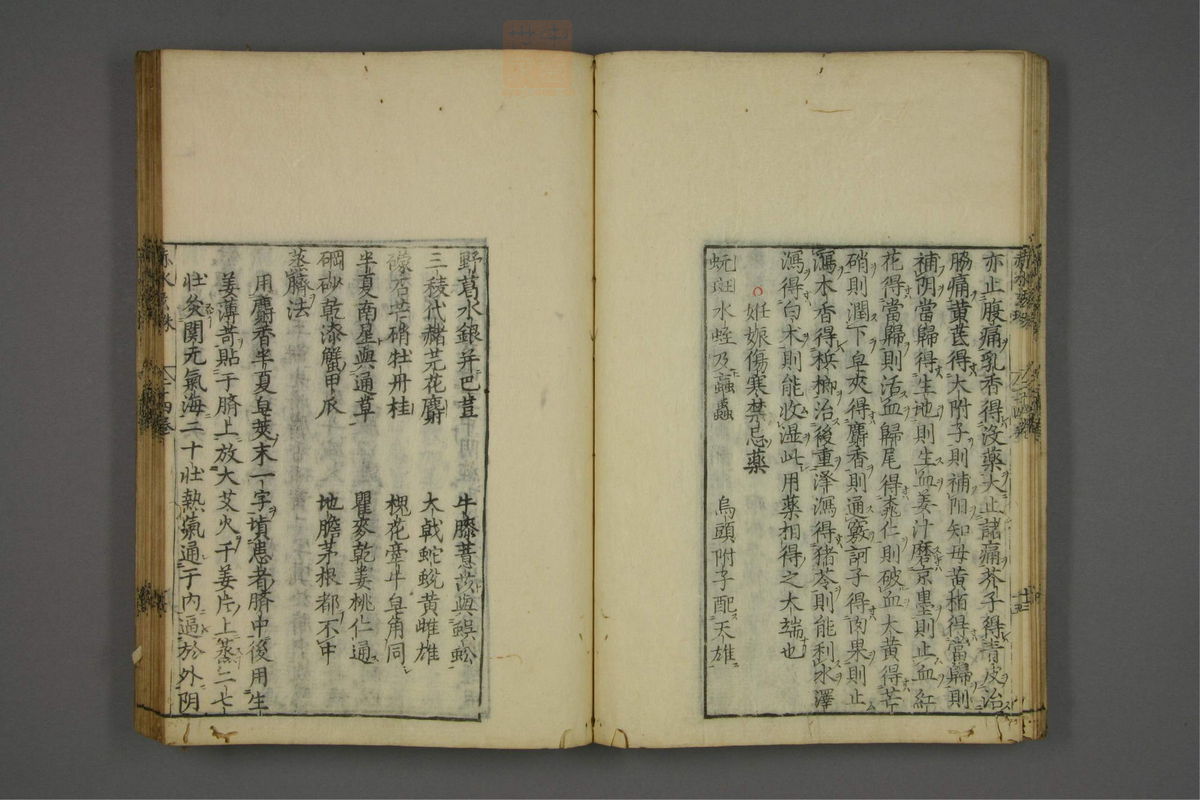 亦止腹痛乳香得没藥大止諸痛芥子得青皮治
脇痛黄芪得大附子則補陽知母黄栢得當歸則
補阴當歸得生地則生血姜汁磨京墨則止血紅
花得當歸則活血歸尾得桃仁則破血大黄得芒
硝則潤下皂夾得麝香則通竅訶子得肉果則止
瀉木香得梹榔治後重澤瀉得猪苓則能利水澤
瀉得白术則能收湿此用藥相得之大端也
妊娠傷寒禁忌藥
蚖斑水蛭及蝱蟲 烏頭附子配天雄
野葛水銀并巴荳 牛膝薏苡與蜈蚣
三稜代赭芫花麝 大戟蛇蛻黄雌雄
礞石芒硝牡丹桂 槐花牽牛皂角同
半夏南星與通草 瞿麥乾姜桃仁通
硇砂乾漆蟹甲爪 地膽茅根都不中
蒸臍法
用麝香半夏皂莢末一字填患者臍中後用生
姜薄苛貼于臍上放大艾火于姜片上蒸二七
壮灸関元氣海二十壮熱氣通于内逼於外阴